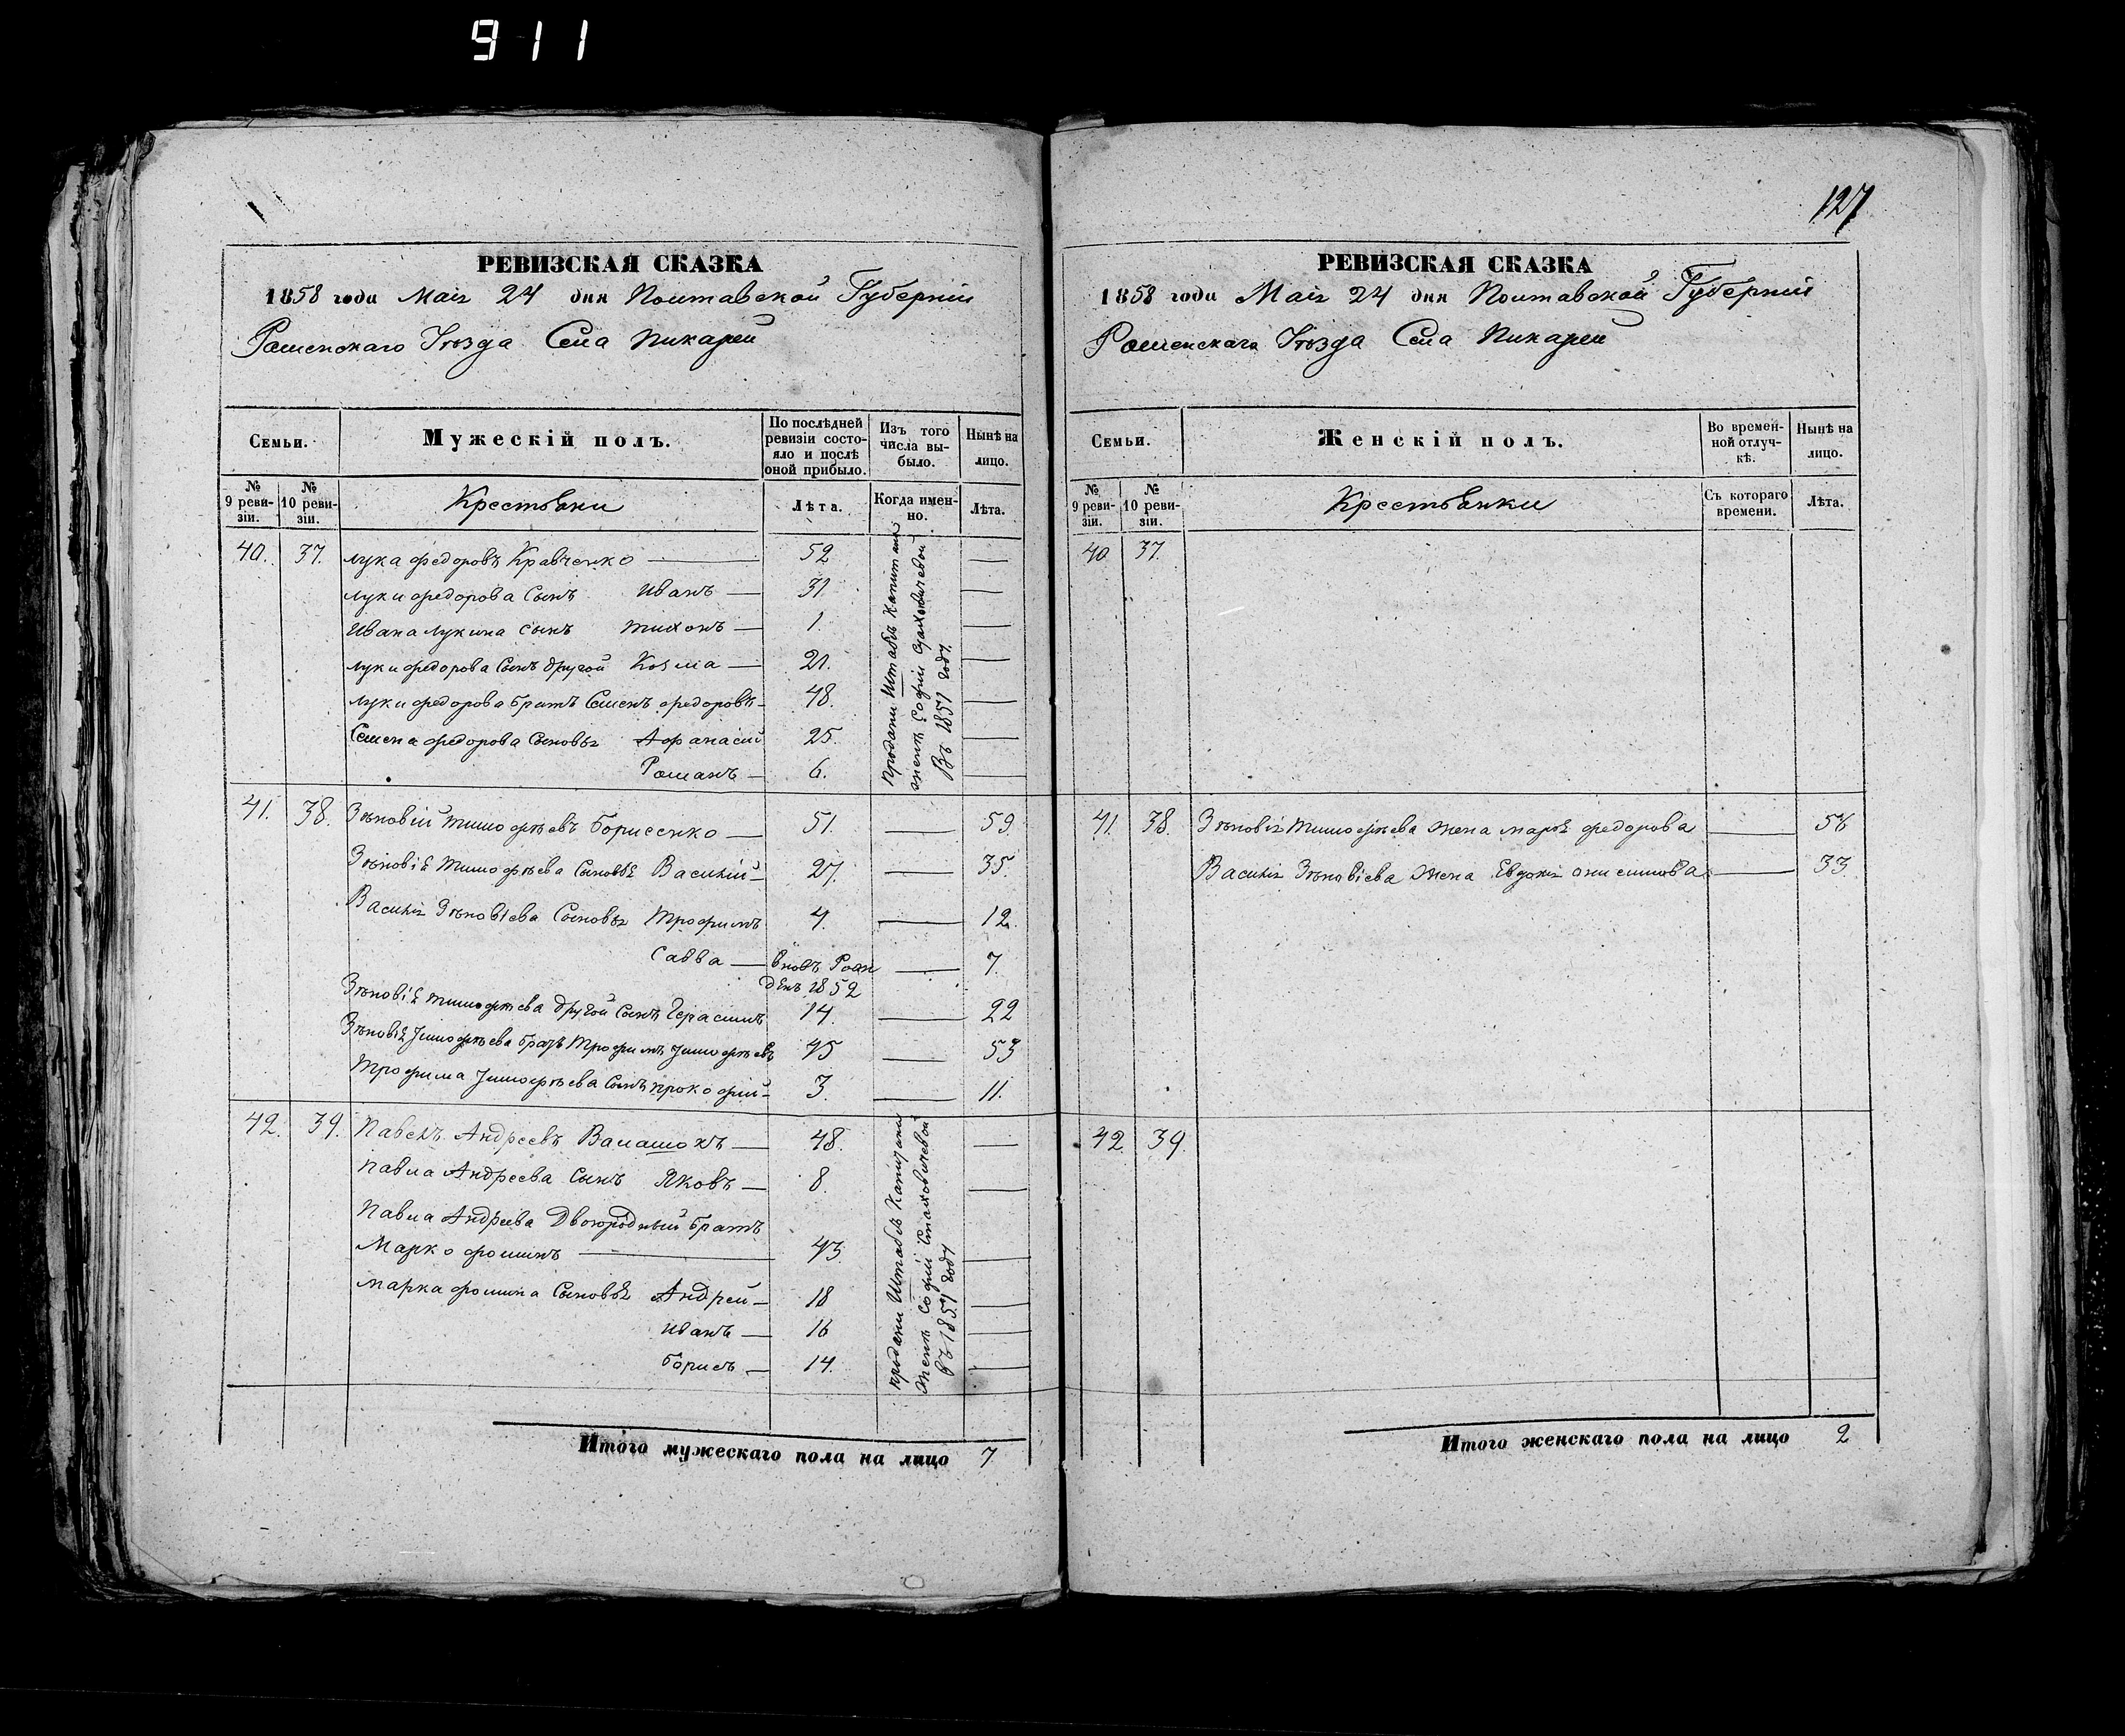 911
127
РЕВИЗСКАЯ СКАЗКА
1858 года Маія 24 дня Полтавской Губерніи
Роменскаго Уѣзда Села Пикарей
Семьи.
Мужескій полъ.
По послѣдней ревизіи состояло и послѣ оной прибыло.
Изъ того числа выбыло.
Нынѣ на лицо.
№ 9 ревизіи.
№ 10 ревизіи.
Крестьяни
Лѣта.
Когда именно.
Лѣта.
40. 37. Лука Федоровъ Кравченко — 52 —
Луки Федорова Сынъ Иванъ — 31 —
Ивана Лукина Сынъ Тихонъ — 1. —
Луки Федорова Сынъ другой Козма — 21. —
Луки Федорова братъ Семенъ Федоровъ — 48. —
Семена Федорова Сыновья Афанасій 25. —
Романъ — 6. —
проданы Штабсъ Капитана
женѣ Софіи Стаховичевой
Въ 1857 году
41. 38. Зѣновій Тимофѣевъ Борисенко — 51. — 59.
Зѣновія Тимофѣева Сыновья Василій — 27. — 35.
Василія Зѣновіева Сыновья Трофимъ 4. — 12.
Савва — вновь Рож — 7.
денъ 1852
Зѣновія Тимофѣева другой Сынъ Герасимъ 14. — 22
Зѣновія Тимофѣева братъ Трофимъ Тимофѣевъ 45 — 53
Трофима Тимофѣева Сынъ Прокофий — 3. — 11.
42. 39. Павелъ Андреевъ Валашокъ — 48. —
Павла Андреева Сынъ Яковъ — 8. —
Павла Андреева Двоюродный братъ
Марко Фоминъ — 43. —
Марка Фомина Сыновья Андрей — 18 —
Иванъ — 16 —
Борисъ — 14. —
проданы Штабсъ Капитана
женѣ Софіи Стаховичевой
въ 1857 году
Итого мужескаго пола на лицо 7
РЕВИЗСКАЯ СКАЗКА
1858 года Маія 24 дня Полтавской Губерніи
Роменскаго Уѣзда Села Пикарей
Семьи.
Женскій полъ.
Во временной отлучкѣ.
Нынѣ на лицо.
№ 9 ревизіи.
№ 10 ревизіи.
Крестьянки
Съ котораго времени.
Лѣта.
40 37.
41. 38. Зѣновія Тимофѣева жена Марья Федорова — 56
Василія Зѣновіева жена Евдокія Онисимова — 33.
42 39.
Итого женскаго пола на лицо 2